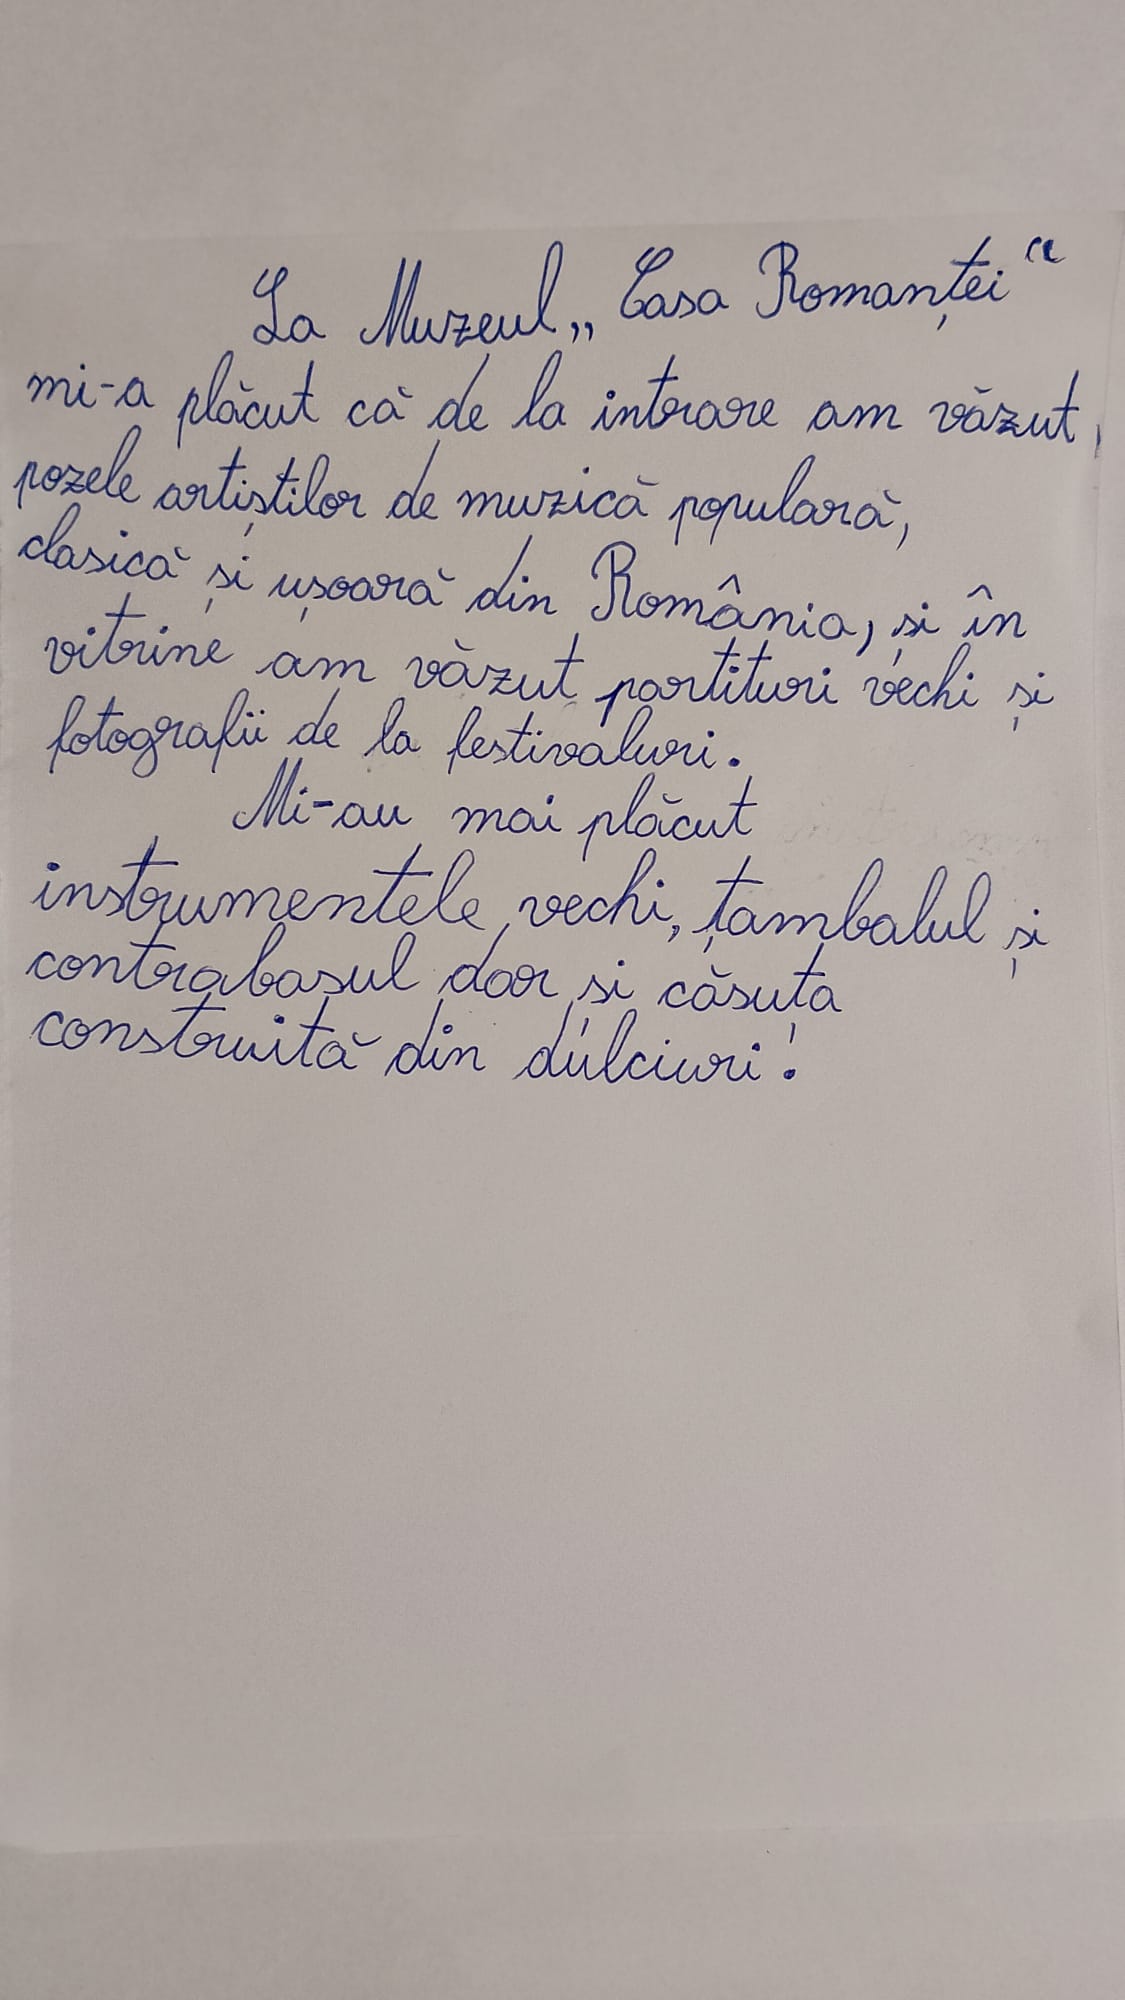 La Muzeul „Casa Romanței“
mi-a plăcut că de la intrare am văzut,
pozele artiștilor de muzică populară,
clasică și ușoară din România, și în
vitrine am văzut partituri vechi și
fotografii de la festivaluri.
Mi-au mai plăcut
instrumentele vechi, țambalul și
contrabasul dar și căsuța
construită din dulciuri!